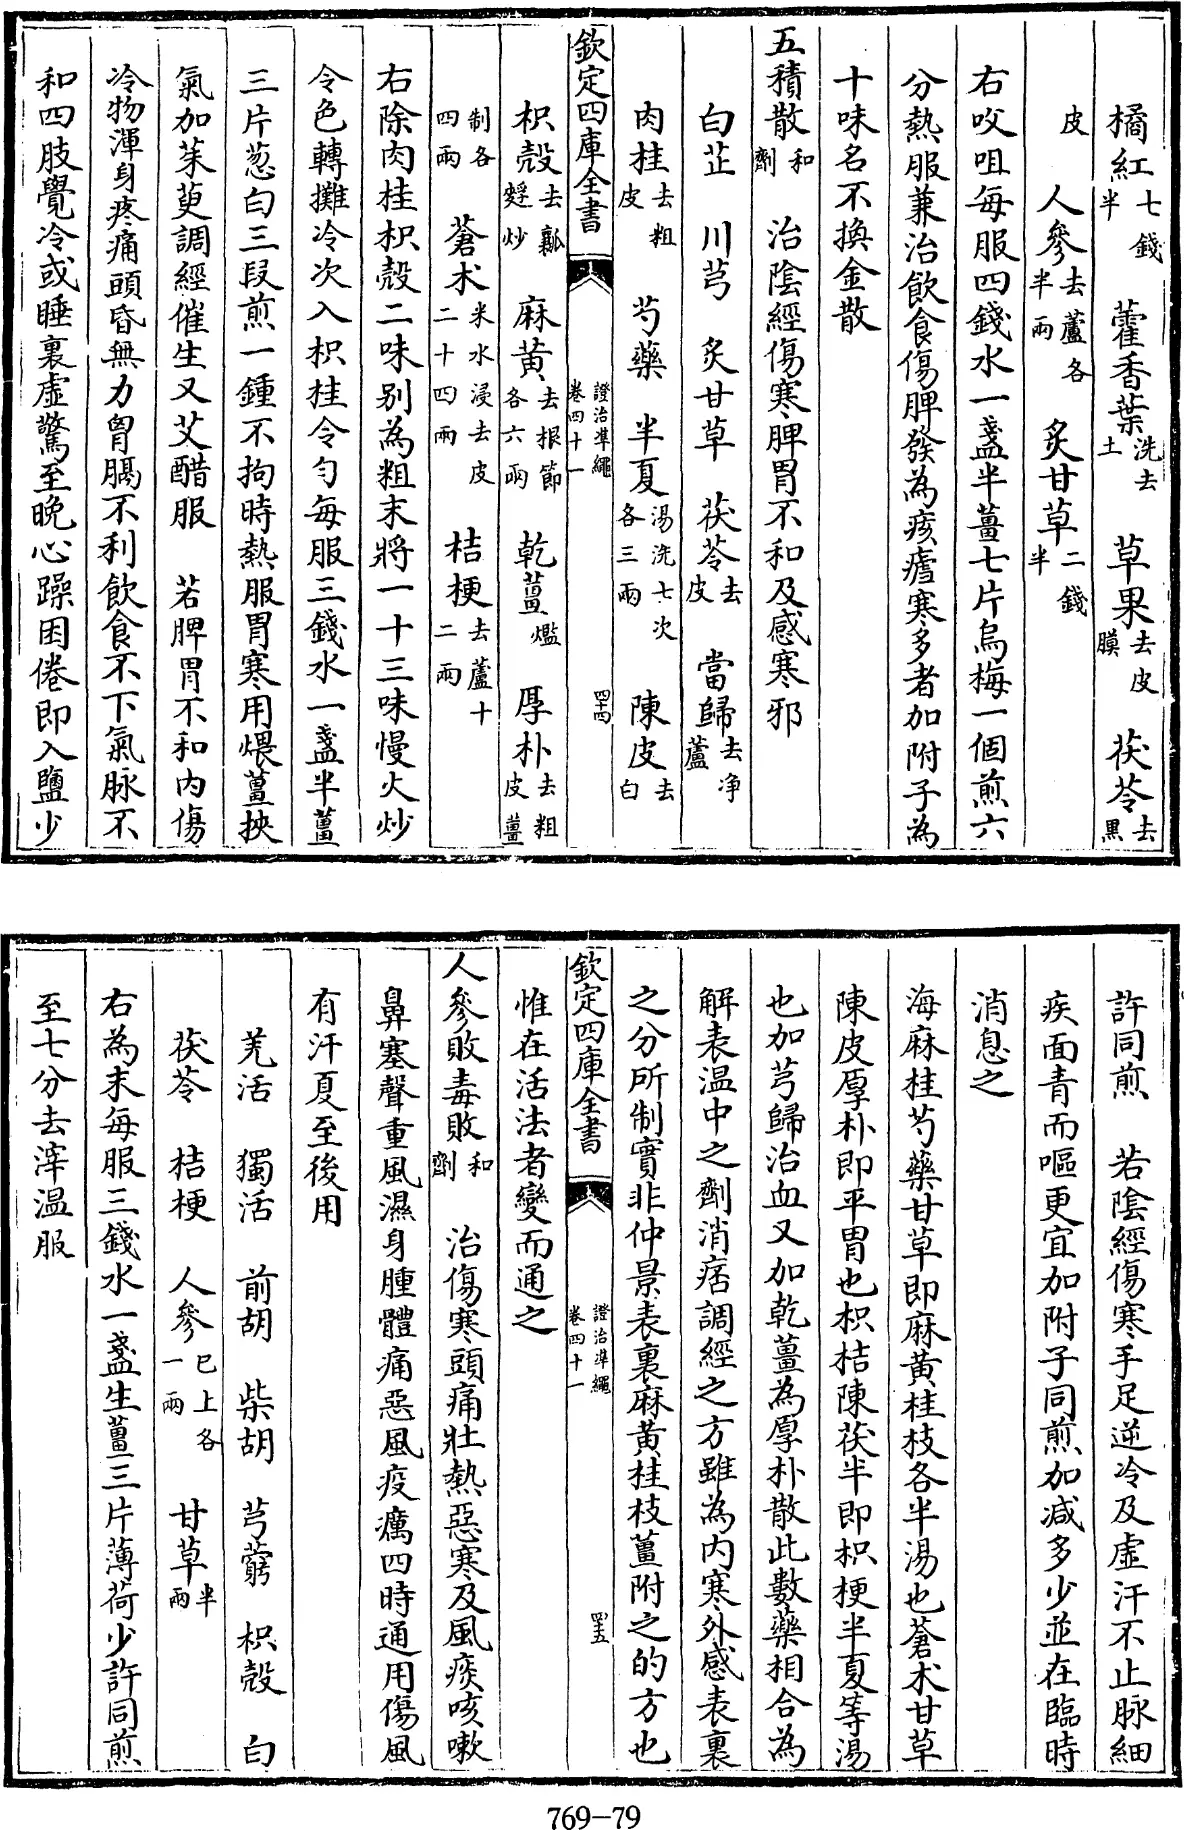 橘紅七錢半　藿香葉洗去土　草果去皮膜　茯苓去黑
皮　人參去蘆各半兩　炙甘草二錢半
右㕮咀每服四錢水一盞半薑七片烏梅一個煎六
分熱服兼治飲食傷脾發為痎瘧寒多者加附子為
十味名不換金散
五積散和劑　治陰經傷寒脾胃不和及感寒邪
白芷　川芎　炙甘草　茯苓去皮　當歸去蘆净
肉桂去粗皮　芍藥　半夏湯洗七次各三兩　陳皮去白
欽定四庫全書　證治準繩卷四十一　四十四
枳殼去瓤麩炒　麻黄去根節各六兩　乾薑爁　厚朴去粗皮薑
制各四兩　蒼术米水浸去皮二十四兩　桔梗去蘆十二兩
右除肉桂枳殼二味别為粗末將一十三味慢火炒
令色轉攤冷次入枳桂令勻每服三錢水一盞半薑
三片葱白三段煎一鍾不拘時熱服胃寒用煨薑挾
氣加茱萸調經催生又艾醋服　若脾胃不和内傷
冷物渾身疼痛頭昏無力胷膈不利飲食不下氣脉不
和四肢覺冷或睡裏虛驚至晚心躁困倦即入鹽少
許同煎　若陰經傷寒手足逆冷及虛汗不止脉細
疾面青而嘔更宜加附子同煎加減多少並在臨時
消息之
海麻桂芍藥甘草即麻黄桂枝各半湯也蒼术甘草
陳皮厚朴即平胃也枳桔陳茯半即枳梗半夏等湯
也加芎歸治血又加乾薑為厚朴散此數藥相合為
解表温中之劑消痞調經之方雖為内寒外感表裏
之分所制實非仲景表裏麻黄桂枝薑附之的方也
欽定四庫全書　證治準繩卷四十一　四十五
惟在活法者變而通之
人參敗毒散和劑　治傷寒頭痛壯熱惡寒及風痰咳嗽
鼻塞聲重風濕身腫體痛惡風疫癘四時通用傷風
有汗夏至後用
羌活　獨活　前胡　柴胡　芎藭　枳殼　白
茯苓　桔梗　人參已上各一兩　甘草半兩
右為末每服三錢水一盞生薑三片薄荷少許同煎
至七分去滓温服
769–79